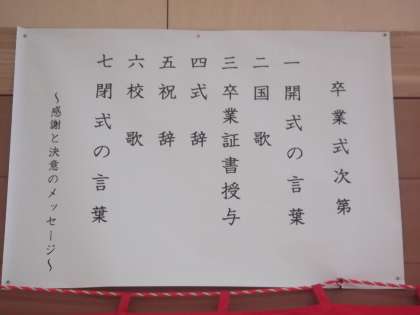 卒業式次第
一 開式の言葉
二 国歌
三 卒業証書授与
四 式辞
五 祝辞
六 校歌
七 閉式の言葉
～感謝と決意のメッセージ～